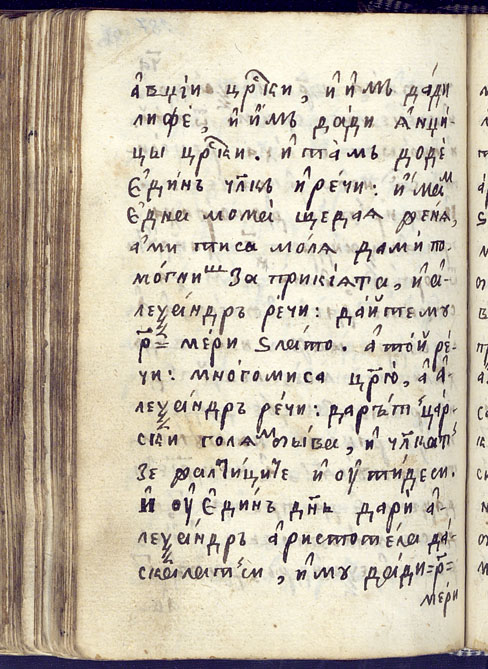 а҆ѵці́и цр҃ки, и҆ и҆́мъ да́ди
лифѐ, и҆ и҆́мъ да́ди а҆нци́-
цы цр҃ки. и҆ та́мъ додѐ
є҆ди́нъ чл҃къ и҆ ре́чи: и҆́ма́м
є҆дна мома̀ ще́дая женя̀,
а҆́ ми ти са моля̀ да ми по-
мо́гниш за прикі́ята, и҆ а҆-
леѯа́ндръ ре́чи: да́йте му
р҃= ме́ри ѕла́то. а҆ то́й ре́-
чи: мно́го ми са цр҃ю̀, а҆ а҆-
леѯа́ндръ ре́чи: да́рът ца́р-
ски голя́м быва, и҆ чл҃кат
зе жалтици́те и҆ оу҆тиде си.
и҆ оу҆ є҆ди́нъ дн҃ь дарѝ а҆-
леѯа́ндръ а҆ристоте́ла да́-
скалат си, и҆́ му да́ди =р҃=
мери